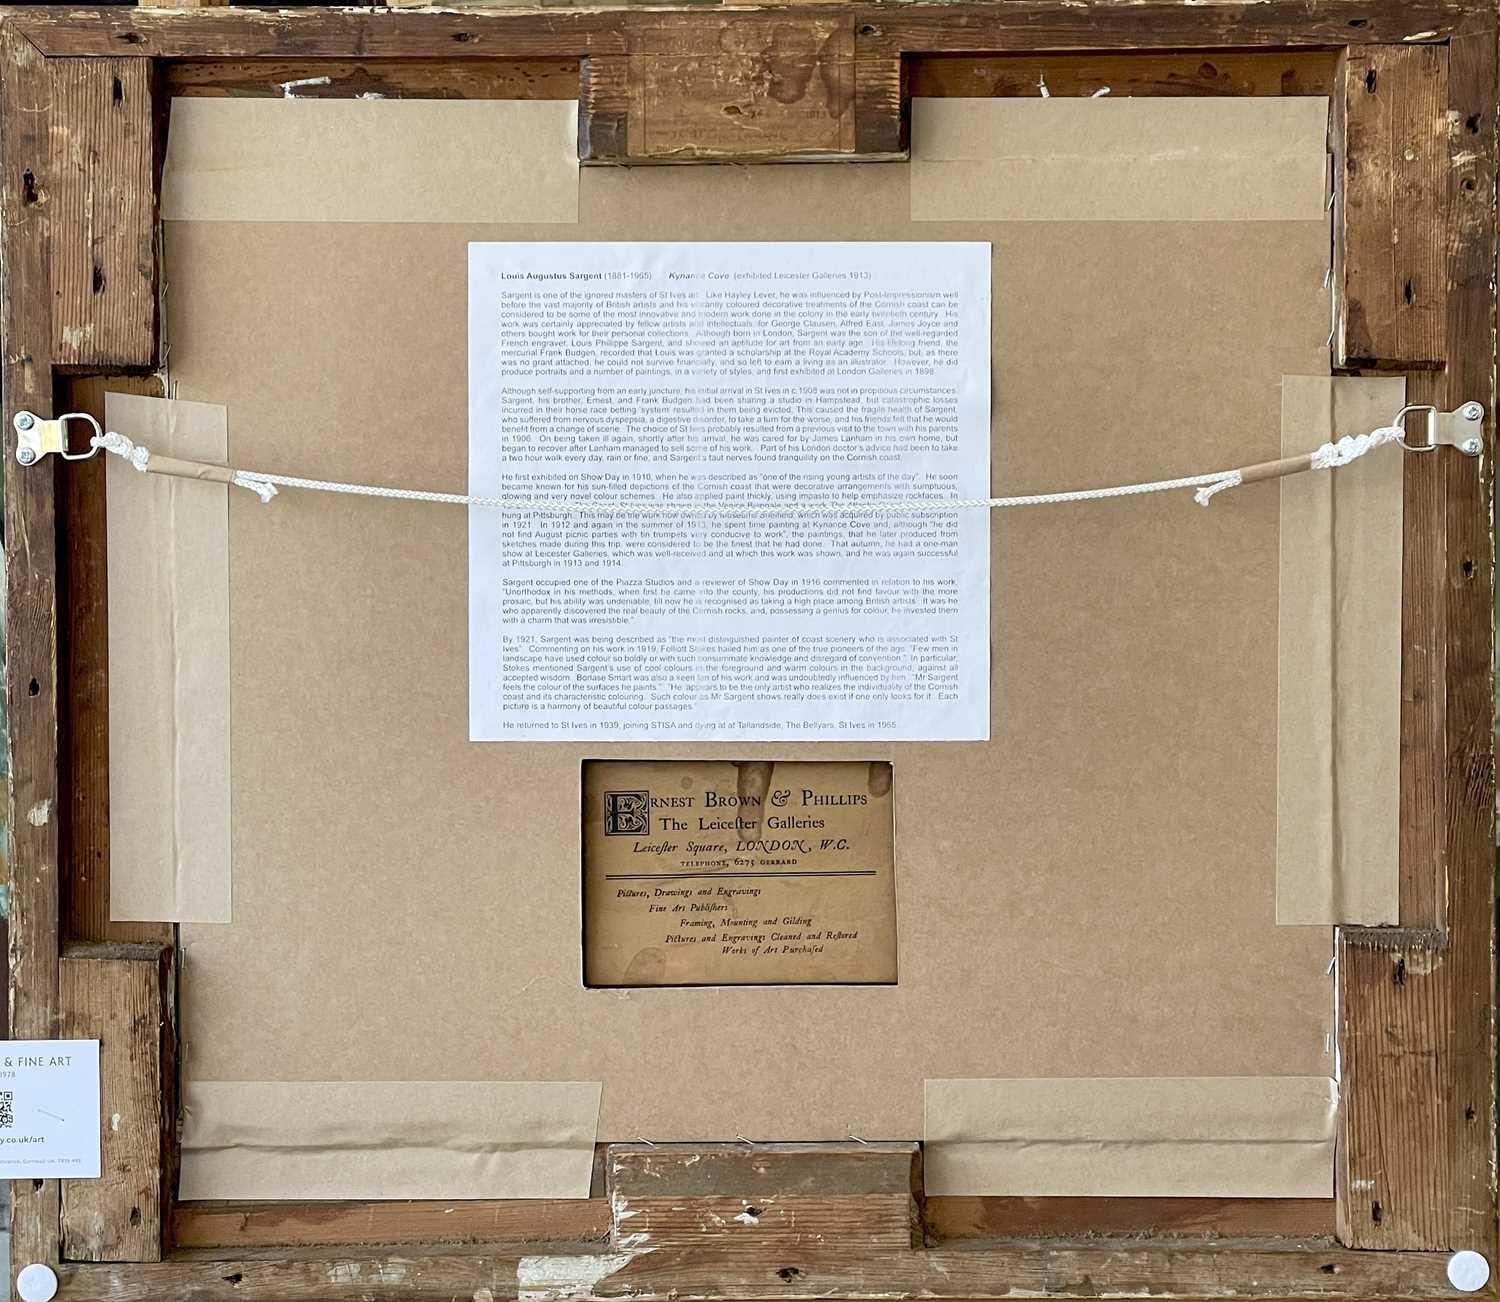 Louis Augustus Sargent (1881-1965) Kynance Cove (exhibited Leicester Galleries 1913)
Sargent is one of the ignored masters of St Ives art. Like Hayley Lever, he was influenced by Post-Impressionism well
before the vast majority of British artists and his vibrantly coloured decorative treatments of the Cornish coast can be
considered to be some of the most innovative and modern work done in the colony in the early twentieth century. His
work was certainly appreciated by fellow artists and intellectuals, for George Clausen, Alfred East, James Joyce and
others bought work for their personal collections. Although born in London, Sargent was the son of the well-regarded
French engraver, Louis Philippe Sargent, and showed an aptitude for art from an early age. His lifelong friend, the
mercurial Frank Budgen, recorded that Louis was granted a scholarship at the Royal Academy Schools, but, as there
was no grant attached, he could not survive financially, and so left to earn a living as an illustrator. However, he did
produce portraits and a number of paintings, in a variety of styles, and first exhibited at London Galleries in 1898.
Although self-supporting from an early juncture, his initial arrival in St Ives in c.1908 was not in propitious circumstances.
Sargent, his brother, Ernest, and Frank Budgen had been sharing a studio in Hampstead, but catastrophic losses
incurred in their horse race betting 'system' resulted in them being evicted. This caused the fragile health of Sargent,
who suffered from nervous dyspepsia, a digestive disorder, to take a turn for the worse, and his friends felt that he would
benefit from a change of scene. The choice of St Ives probably resulted from a previous visit to the town with his parents
in 1906. On being taken ill again, shortly after his arrival, he was cared for by James Lanham in his own home, but
began to recover after Lanham managed to sell some of his work. Part of his London doctor's advice had been to take
a two hour walk every day, rain or fine, and Sargent's taut nerves found tranquility on the Cornish coast.
He first exhibited on Show Day in 1910, when he was described as "one of the rising young artists of the day". He soon
became known for his sun-filled depictions of the Cornish coast that were decorative arrangements with sumptuous,
glowing and very novel colour schemes. He also applied paint thickly, using impasto to help emphasize rockfaces. In
St Ives was shown in the Venice Biennale and a work
hung at Pittsburgh. This may be the work now owned by Museums Sheffield, which was acquired by public subscription
in 1921. In 1912 and again in the summer of 1913, he spent time painting at Kynance Cove and, although "he did
not find August picnic parties with tin trumpets very conducive to work", the paintings, that he later produced from
sketches made during this trip, were considered to be the finest that he had done. That autumn, he had a one-man
show at Leicester Galleries, which was well-received and at which this work was shown, and he was again successful
at Pittsburgh in 1913 and 1914.
Sargent occupied one of the Piazza Studios and a reviewer of Show Day in 1916 commented in relation to his work,
"Unorthodox in his methods, when first he came into the county, his productions did not find favour with the more
prosaic, but his ability was undeniable, till now he is recognised as taking a high place among British artists. It was he
who apparently discovered the real beauty of the Cornish rocks, and, possessing a genius for colour, he invested them
with a charm that was irresistible."
By 1921, Sargent was being described as "the most distinguished painter of coast scenery who is associated with St
Ives". Commenting on his work in 1919, Folliott Stokes hailed him as one of the true pioneers of the age. "Few men in
landscape have used colour so boldly or with such consummate knowledge and disregard of convention." In particular,
Stokes mentioned Sargent's use of cool colours in the foreground and warm colours in the background, against all
accepted wisdom. Borlase Smart was also a keen fan of his work and was undoubtedly influenced by him. "Mr Sargent
feels the colour of the surfaces he paints." "He appears to be the only artist who realizes the individuality of the Cornish
coast and its characteristic colouring. Such colour as Mr Sargent shows really does exist if one only looks for it. Each
picture is a harmony of beautiful colour passages."
He returned to St Ives in 1939, joining STISA and dying at at Tallandside, The Bellyars, St Ives in 1965.
ERNEST BROWN & PHILLIPS
The Leicester Galleries
Leicester Square, LONDON, W.C.
TELEPHONE, 6275 GERRARD
Pictures, Drawings and Engravings
Fine Art Publishers
Framing, Mounting and Gilding
Pictures and Engravings Cleaned and Restored
Works of Art Purchased
& FINE ART
1978
y.co.uk/art